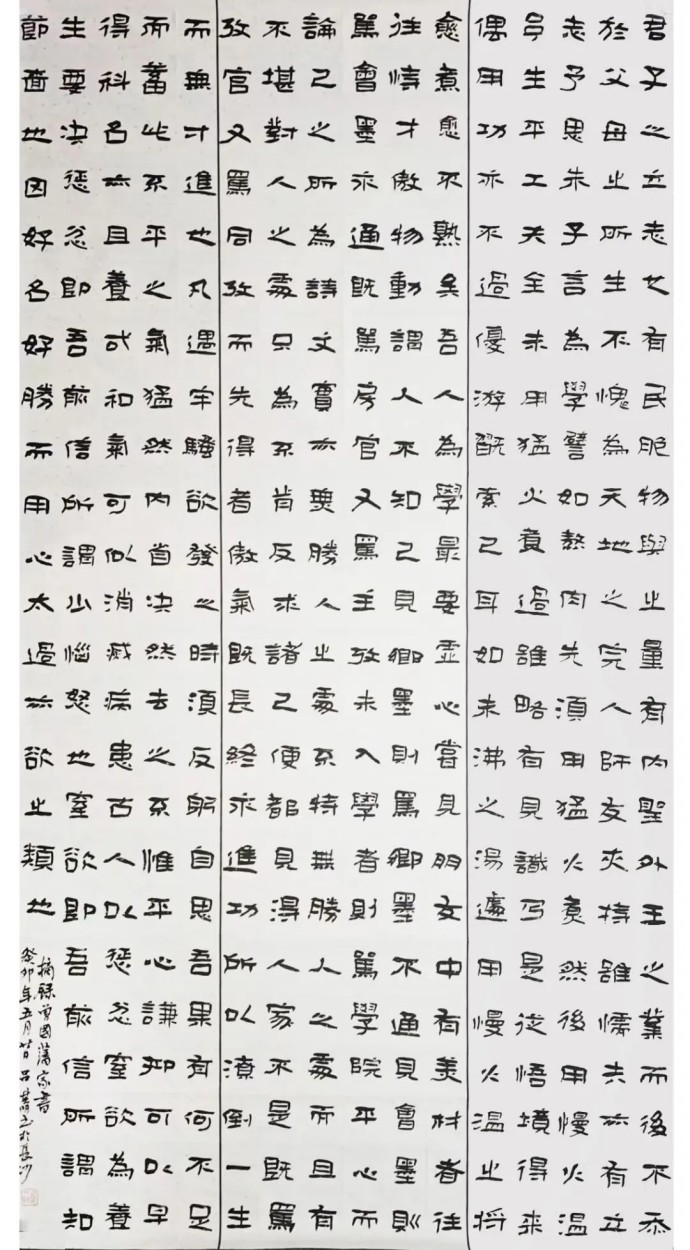 君子之立志也有民胞物與之量有內聖外王之業而後不忝
於父母之所生不愧為天地之完人師友夾持雖懦夫亦有立
志予思朱子言為學譬如熬肉先須用猛火煮然後用慢火溫
予生平工夫全未用猛火煮過雖略有見識乃是從悟境得來
偶用功亦不過優游翫索已耳如未沸之湯遽用慢火溫之將
愈煮愈不熟矣吾人為學最要虛心嘗見朋友中有美材者往
往恃才傲物動謂人不如己見鄉墨則罵鄉墨不通見會墨則
罵會墨不通既罵房官又罵主考未入學者則罵學院平心而
論己之所為詩文實亦無勝人之處不特無勝人之處而且有
不堪對人之處只為不肯反求諸己便都見得人家不是既罵
考官又罵同考而先得者傲氣既長終不進功所以潦倒一生
而無寸進也凡遇牢騷欲發之時須反躬自思吾果有何不足
而蓄此不平之氣猛然內省決然去之不惟平心謙抑可以早
得科名亦且養此和氣可以消減病患古人以懲忿窒欲為養
生要決懲忿即吾前信所謂少惱怒也窒欲即吾前信所謂知
節嗇也因好名好勝而用心太過亦欲之類也
摘錄曾國藩家書
癸卯年五月於長沙